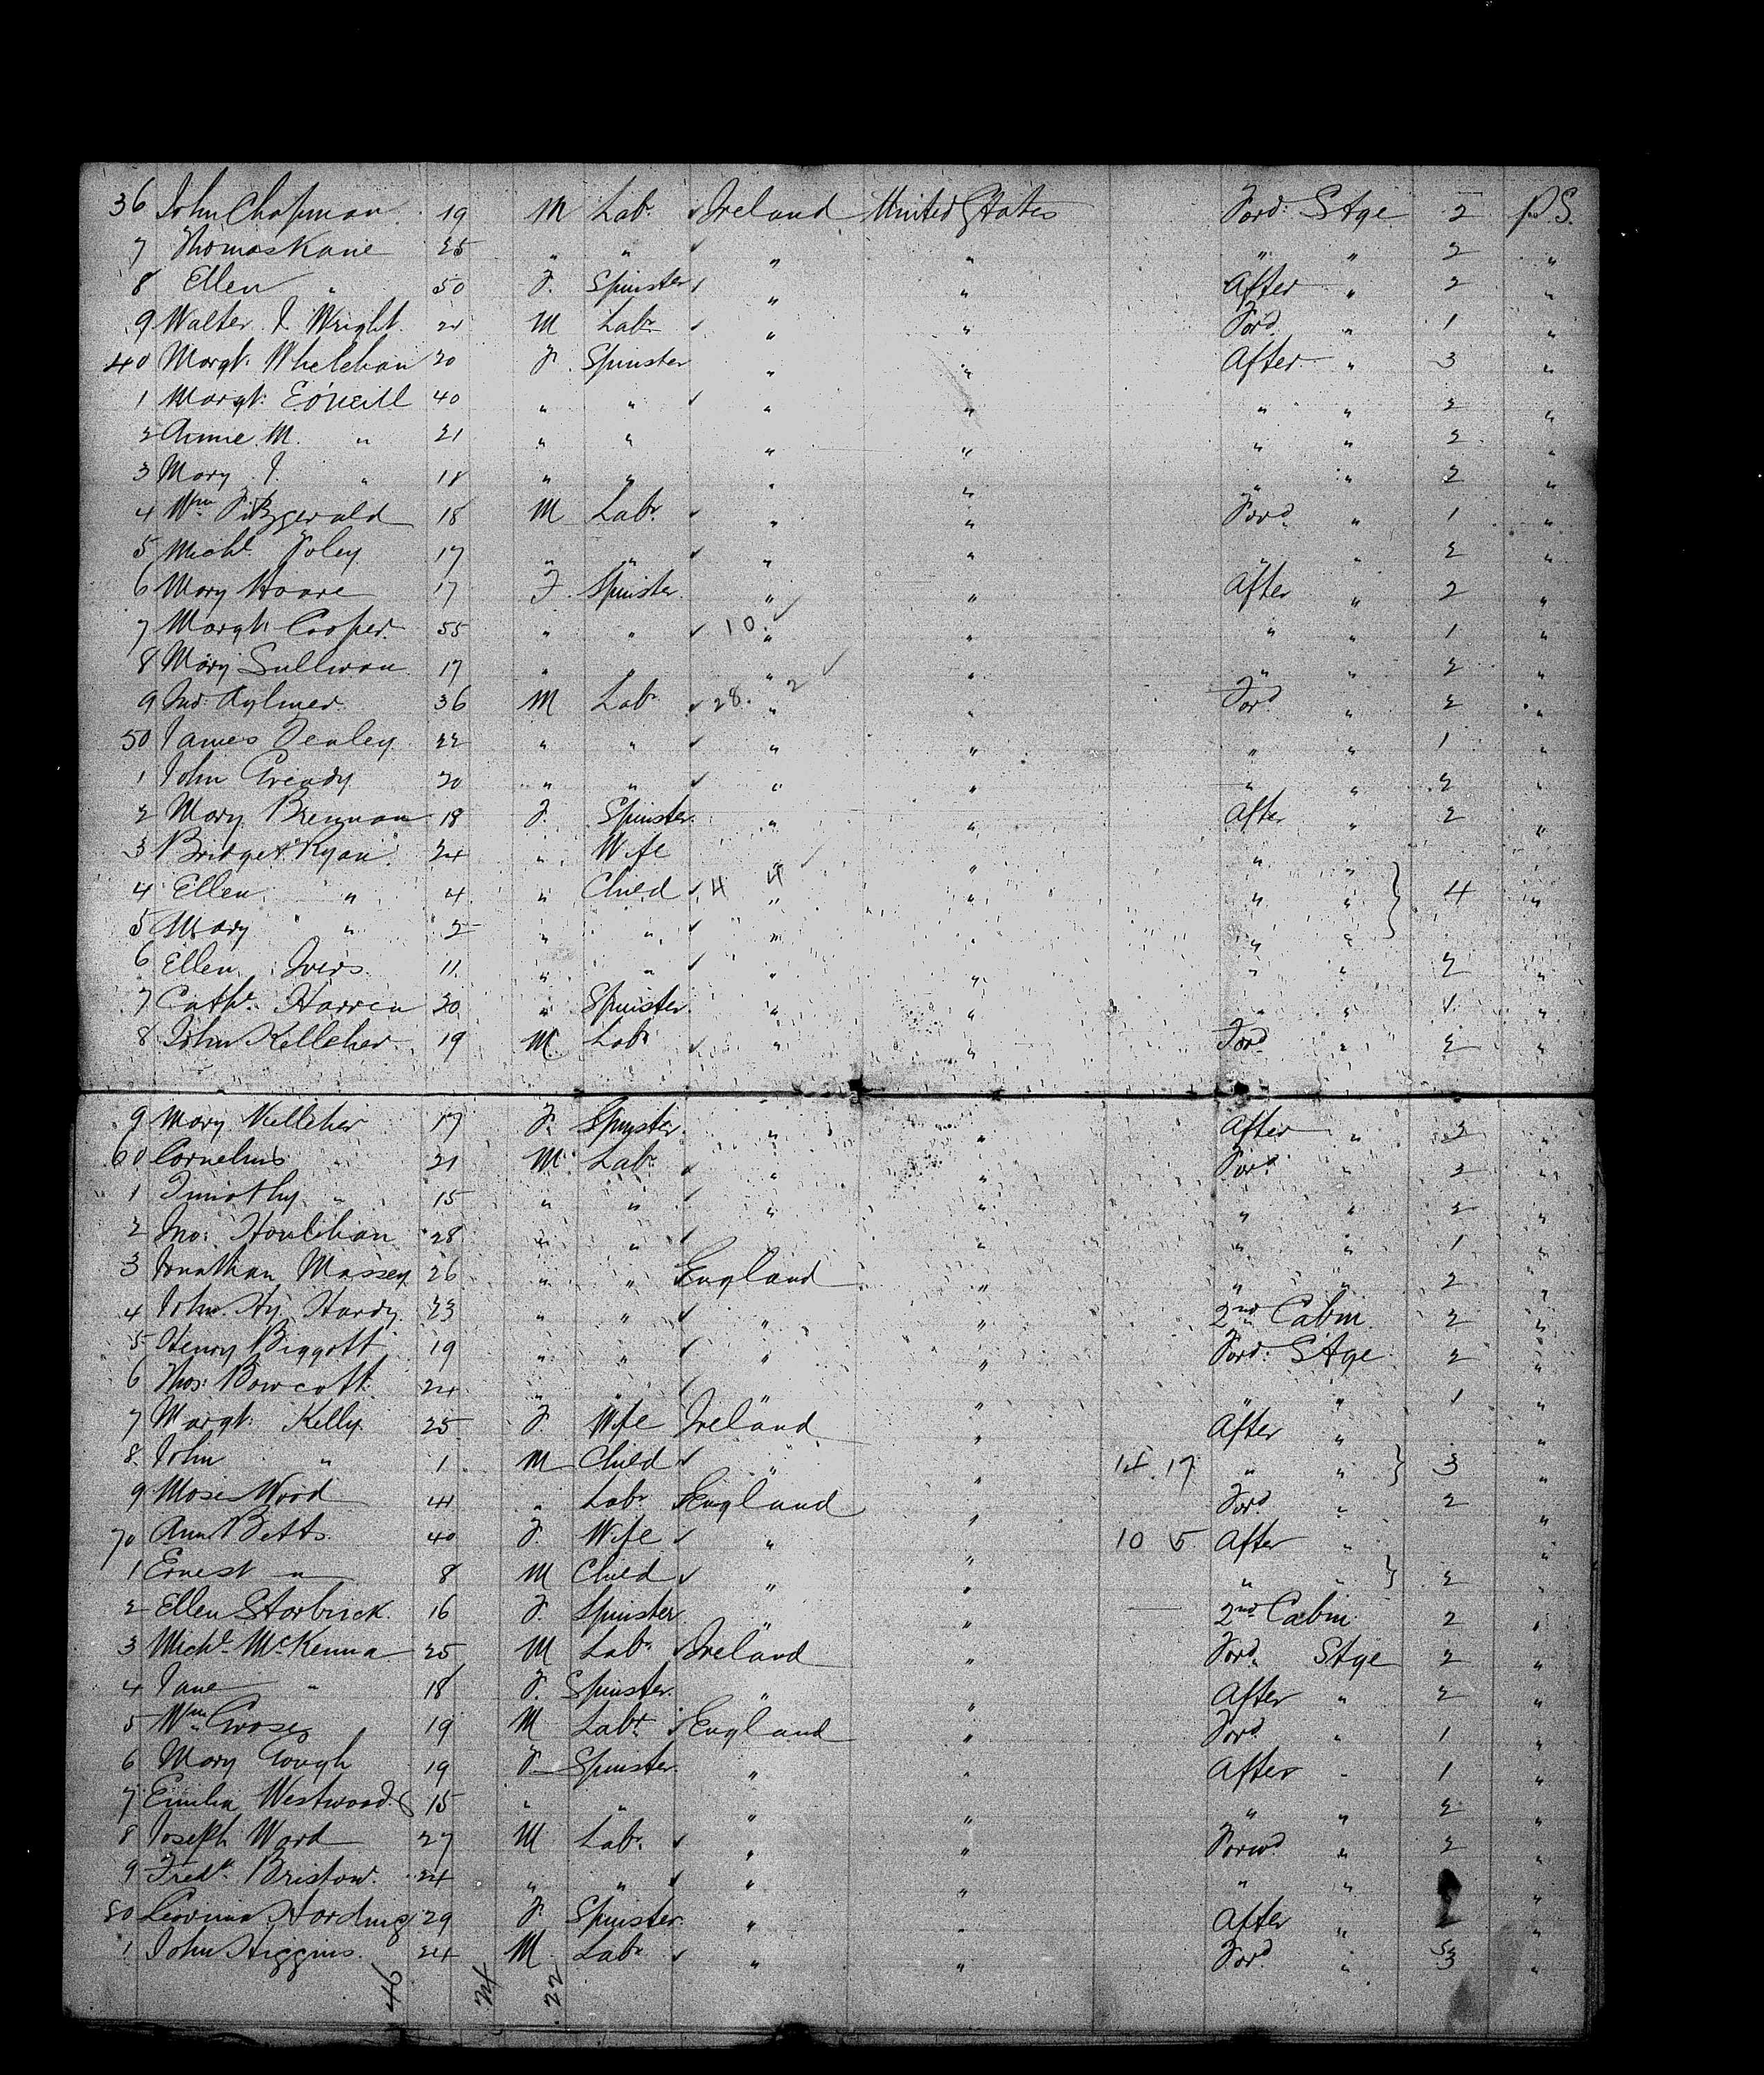 36 John Chapman 19 M Labr Ireland United States Ford Stge 2 P.S.
7 Thomas Kane 25 " " " " " " 2 "
8 Ellen " 50 F. Spinster " " After " 2 "
9 Walter J Wright M Labr " " Ford " 1 "
40 Margt. Whelehan 20 F. Spinster " " After " 3 "
1 Margt. E. O'Neill 40 " " " " " " 2 "
2 Annie M. " 21 " " " " " " 2 "
3 Mary J. " 18 " " " " " " 2 "
4 Wm Fitzgerald 18 M Labr " " Ford " 1 "
5 Michl. Foley 17 " " " " " " 2 "
6 Mary Hoare 17 F. Spinster " " After " 2 "
7 Margt. Cooper 55 " " 10 " " " " 1 "
8 Mary Sullivan 17 " " " " " " 2 "
9 Aylmer 36 M Labr 28. 2 " " Ford " 2 "
50 James 22 " " " " " " 1 "
1 John Gready 20 " " " " " " 2 "
2 Mary Brennan 18 F Spinster " " After " 2 "
3 Bridget Ryan 24 " Wife " " " "
4 Ellen " 4 " Child 4 4 " " " " 4 "
5 Mary " 2 " " " " " "
6 Ellen Ivers 11 " " " " " " 2 "
7 Cathe. 30 " Spinster " " " " 1 "
8 John Kelleher 19 M Labr " " Ford " 2 "
9 Mary Kelleher 17 F. Spinster " " After " 2 "
60 Cornelius " 21 M Labr " " Ford " 2 "
1 Timothy " 15 " " " " " " 2 "
2 Jno: Houlihan 28 " " " " " 1 "
3 Jonathan Massey 26 " " England " " " 2 "
4 John Hy. Hardy 23 " " " " 2nd Cabin 2 "
5 Henry Biggott 19 " " " " Ford: Stge 2 "
6 Thos: Bowcott 24 " " " " " " 1 "
7 Margt. Kelly 25 F. Wife Ireland " After " "
8 John " 1 M Child " " 14. 17 " " 3 "
9 Moses Wood 44 " Labr England " Ford " 2 "
70 Ann Betts 40 F. Wife " " 10 5 After " "
1 Ernest " 8 M Child " " " " 2 "
2 Ellen Starbuck 16 F. Spinster " " 2nd Cabin 2 "
3 Michl. McKenna 25 M Labr Ireland " Ford Stge 2 "
4 Jane " 18 F. Spinster " " After " 2 "
5 Wm 19 M Labr England " Ford " 1 "
6 Mary Gough 19 F Spinster " " After " 1 "
7 Emilia Westwood 15 " " " " " " 2 "
8 Joseph Ward 27 M Labr " " Forwd " 2 "
9 Fredk. Bristow 24 " " " " " "
80 Harding 29 F. Spinster " " After " 2 "
1 John Higgins 24 M Labr " " Ford " 3 "
46 24 22